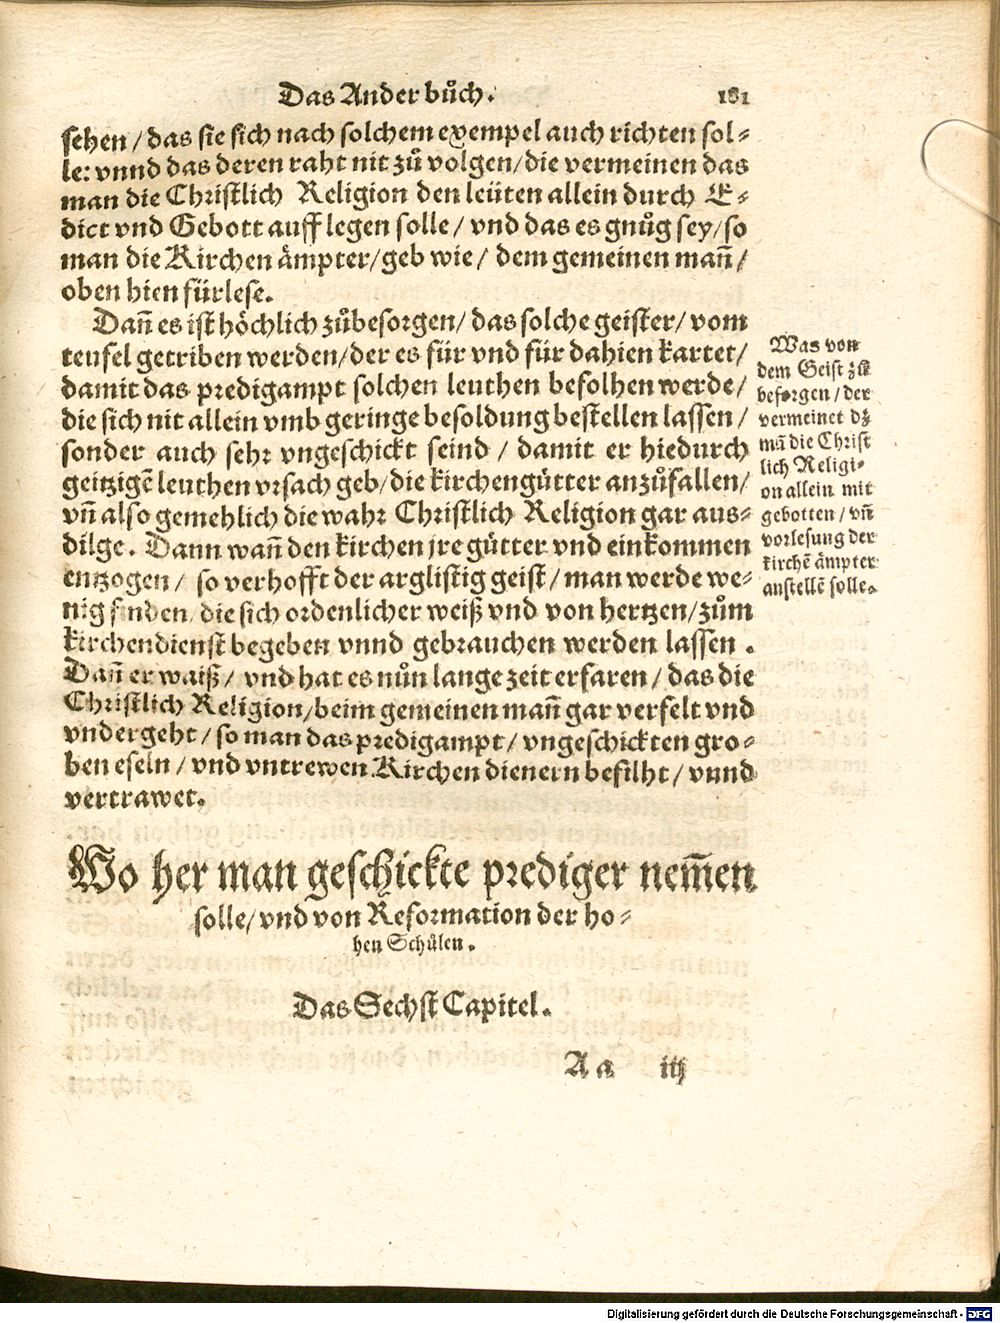 Das Ander bůch. 181
sehen / das sie sich nach solchem exempel auch richten sol-
le: vnnd das deren raht nit zů volgen/die vermeinen das
man die Christlich Religion den leüten allein durch E-
dict vnd Gebott auff legen solle / vnd das es gnůg sey/so
man die Kirchen ämpter/geb wie / dem gemeinen mañ/
oben hien fürlese.
Dañ es ist höchlich zůbesorgen/das solche geister/vom
teufel getriben werden/der es für vnd für dahien kartet/
damit das predigampt solchen leuthen befolhen werde/
die sich nit allein vmb geringe besoldung bestellen lassen/
sonder auch sehr vngeschickt seind / damit er hiedurch
geitzigē leuthen vrsach geb/die kirchengütter anzůfallen/
vñ also gemehlich die wahr Christlich Religion gar aus-
dilge. Dann wañ den kirchen jre gütter vnd einkommen
entzogen / so verhofft der arglistig geist/man werde we-
nig finden/die sich ordenlicher weiß vnd von hertzen/zům
kirchendienst begeben vnnd gebrauchen werden lassen.
Dañ er waiß/ vnd hat es nůn lange zeit erfaren/das die
Christlich Religion/beim gemeinen mañ gar verfelt vnd
vndergeht/so man das predigampt/vngeschickten gro-
ben eseln/vnd vntrewen Kirchen dienern befilht/vnnd
vertrawet.
Was von
dem Geist zů
besorgen/der
vermeinet dz
mā die Christ
lich Religi-
on allein mit
gebotten/vñ
vorlesung der
kirchē ämpter
anstellē solle.
Wo her man geschickte prediger nem̄en
solle/vnd von Reformation der ho-
hen Schůlen.
Das Sechst Capitel.
A a iij
Digitalisierung gefördert durch die Deutsche Forschungsgemeinschaft - DFG